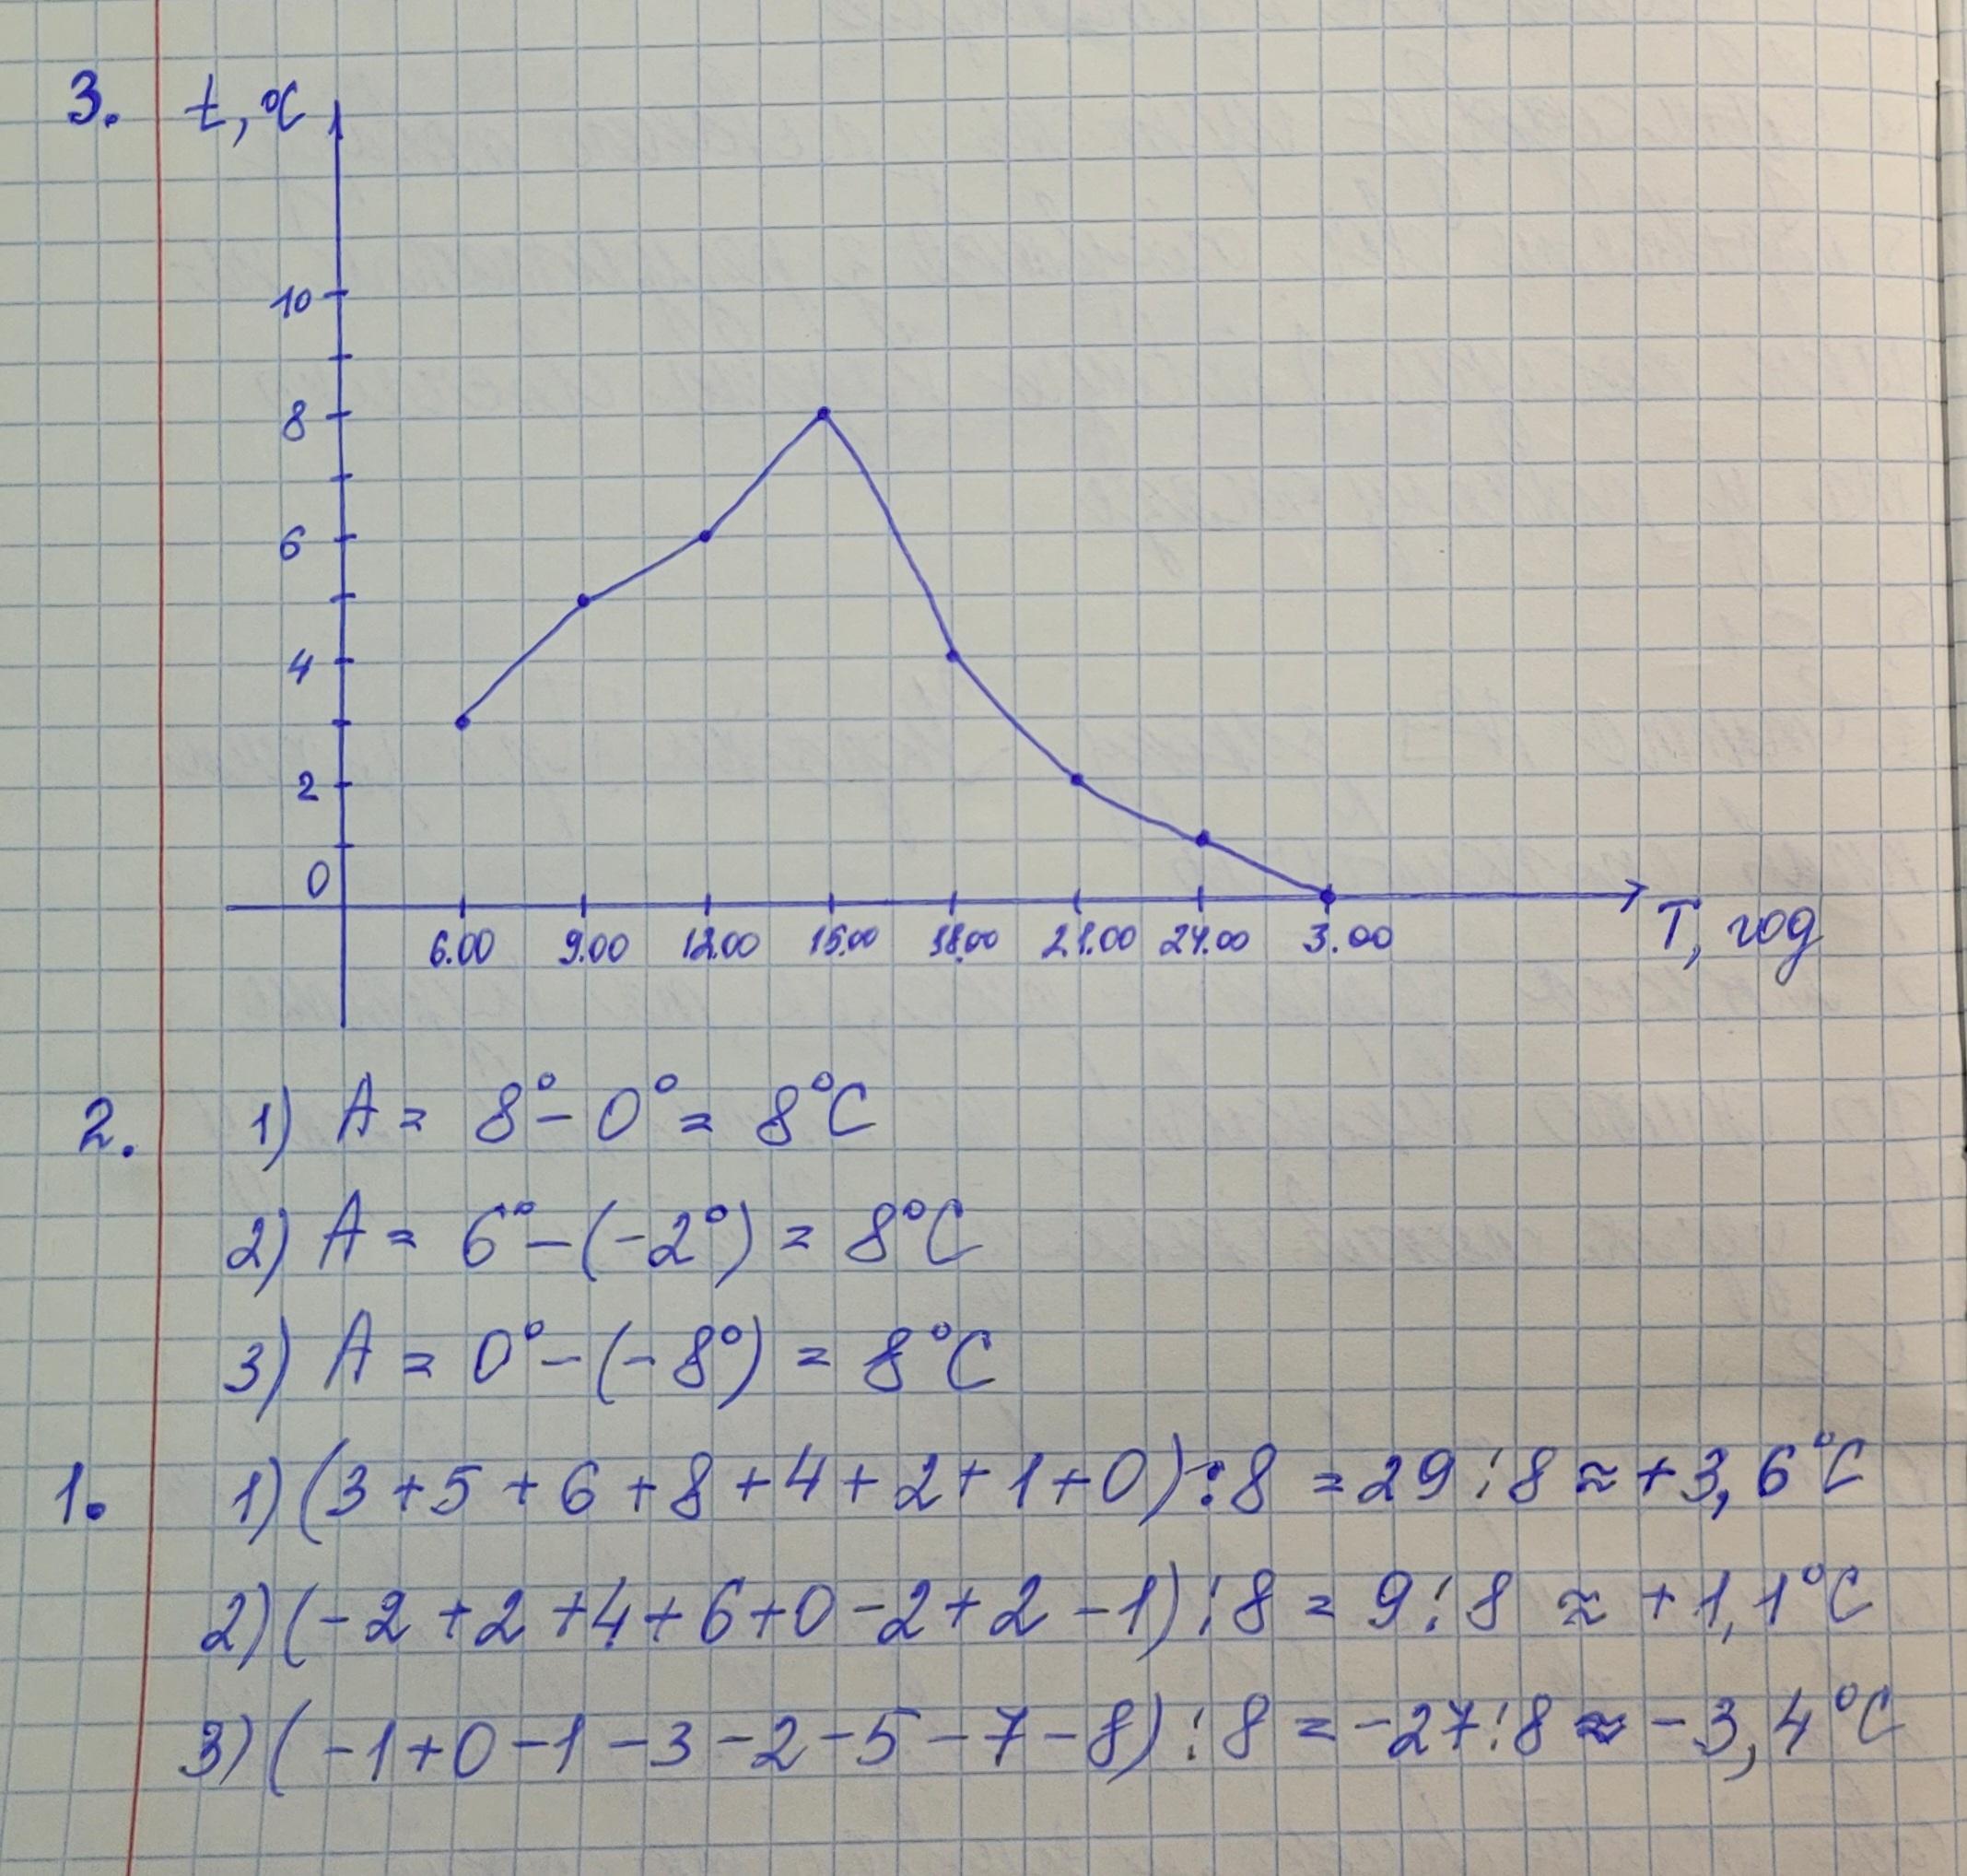 3. t, °C
10
8
6
4
2
0
6.00 9.00 12.00 15.00 18.00 21.00 24.00 3.00 T, год
2. 1) A = 8° - 0° = 8°C
2) A = 6° - (-2°) = 8°C
3) A = 0° - (-8°) = 8°C
1. 1) (3 + 5 + 6 + 8 + 4 + 2 + 1 + 0) : 8 = 29 : 8 ≈ +3,6°C
2) (-2 + 2 + 4 + 6 + 0 - 2 + 2 - 1) : 8 = 9 : 8 ≈ +1,1°C
3) (-1 + 0 - 1 - 3 - 2 - 5 - 7 - 8) : 8 = -27 : 8 ≈ -3,4°C